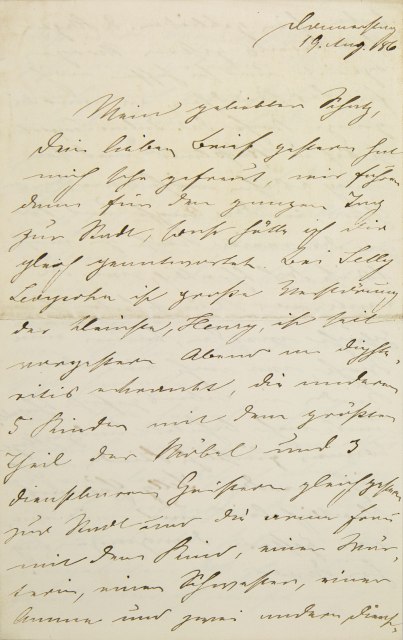 Donnerstag
19. Aug. 86
Mein geliebter Schatz,
Dein lieber Brief gestern hat
mich sehr gefreut, wir fuhren
dann für den ganzen Tag
zur Stadt, sonst hätte ich Dir
gleich geantwortet. Bei Selly
ist große Verstörung
der kleinste, Henry, ist seit
vorgestern Abend an Diphte-
ritis erkrankt, die anderen
5 Kinder mit dem größten
Theil der Möbel und 3
dienstbaren Geistern gleich gestern
zur Stadt und die arme Frau
mit dem Kind, einer Wär-
terin, einer Schwester, einer
Amme und zwei andern Dienst-